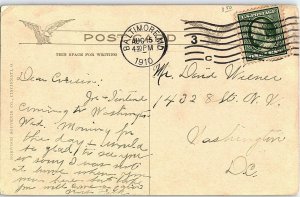 POSTCARD
THIS SPACE FOR WRITING
BALTIMORE, MD.
4 PM
1910
3
C
Dear Cousin:
In-tend
coming to Washington
Wed. Morning for
the day & would
be glad to see you
so sorry I was not
at home when you
was here but hope
you will
Mr. David Wiener
1432 8 St. N.W.
Washington
D.C.